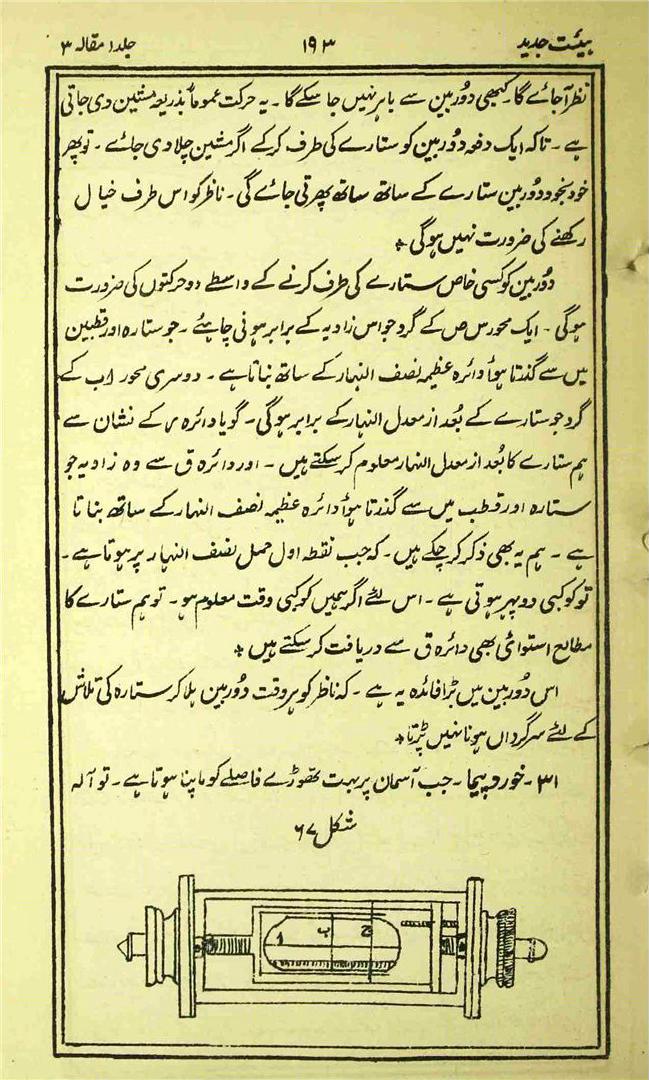 ہیئت جدید ۱۹۳ جلد۱ مقالہ ۳
نظر آجائے گا۔ کبھی دُوربین سے باہر نہیں جا سکے گا۔ یہ حرکت عموماً بذریعہ مشین دی جاتی
ہے۔ تاکہ ایک دفعہ دُوربین کو ستارے کی طرف کرکے اگر مشین چلا دی جائے۔ تو پھر
خود بخود دُوربین ستارے کے ساتھ ساتھ پھرتی جائے گی۔ ناظر کو اس طرف خیال
رکھنے کی ضرورت نہیں ہوگی *
دُوربین کو کسی خاص ستارے کی طرف کرنے کے واسطے دو حرکتوں کی ضرورت
ہوگی۔ ایک محور س ص کے گرد جو اس زاویہ کے برابر ہونی چاہئے۔ جو ستارہ اور قطبین
میں سے گذرتا ہوُا دائرہ عظیمہ نصف النہار کے ساتھ بناتا ہے۔ دوسری محور ا ب کے
گرد جو ستارے کے بُعد از معدل النہار کے برابر ہوگی۔ گویا دائرہ ر کے نشان سے
ہم ستارے کا بُعد از معدل النہار معلوم کرسکتے ہیں۔ اور دائرہ ق سے وہ زاویہ جو
ستارہ اور قطب میں سے گذرتا ہوُا دائرہ عظیمہ نصف النہار کے ساتھ بناتا
ہے۔ ہم یہ بھی ذکر کرچکے ہیں۔ کہ جب نقطہ اول حمل نصف النہار پر ہوتا ہے۔
تو کوکبی دوپہر ہوتی ہے۔ اس لئے اگر ہمیں کوکبی وقت معلوم ہو۔ تو ہم ستارے کا
مطالع استوائی بھی دائرہ ق سے دریافت کرسکتے ہیں *
اس دُوربین میں بڑا فائدہ یہ ہے۔ کہ ناظر کو ہر وقت دُوربین ہلا کر ستارہ کی تلاش
کے لئے سرگرداں ہونا نہیں پڑتا *
۳۱۔ خورد پیما۔ جب آسمان پر بہت تھوڑے فاصلے کو ماپنا ہوتا ہے۔ تو آلہ
شکل ۶۷
ا ب ج